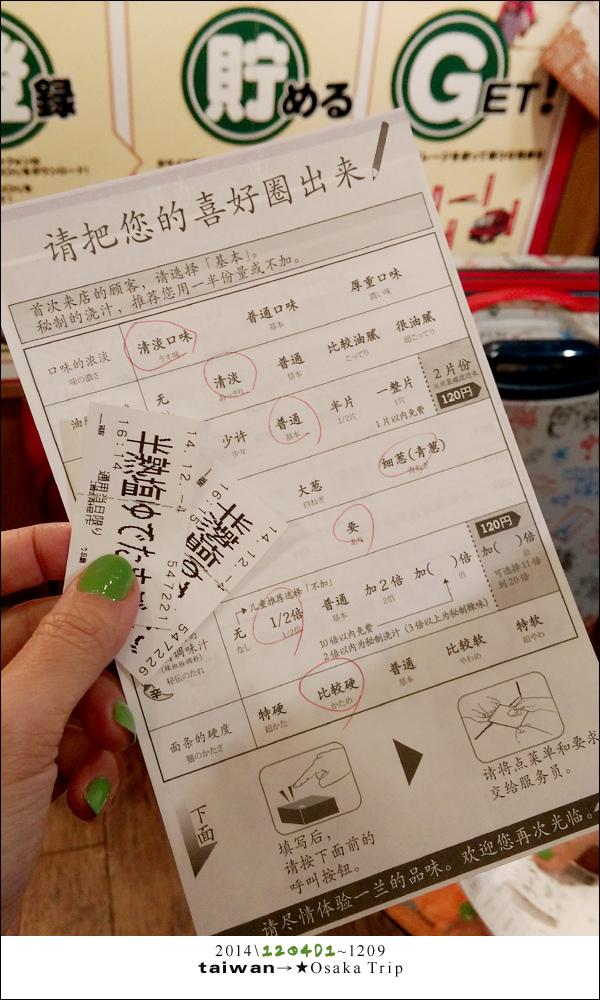 登録
貯める
GET!
请把您的喜好圈出来
首次来店的顾客，请选择「基本」。
秘制的浇汁，推荐您用一半份量或不加。
口味的浓淡
味の濃さ
清淡口味
うす味
普通口味
基本
厚重口味
濃い味
无
清淡
あっさり
普通
基本
比较油腻
こってり
很油腻
超こってり
少许
少々
普通
基本
半片
1/2片
一整片
1片
1片以内免费
2片份
120円
大葱
白ねぎ
细葱(青葱)
青ねぎ
要
儿童推荐选择「不加」
无
なし
1/2倍
1/2倍
普通
基本
加2倍
2倍
加( )倍
倍
加( )倍
120円
可选择11倍
到20倍
10倍以内免费
2倍以内为秘制浇汁(3倍以上为秘制辣味)
调味汁
秘伝のたれ
面条的硬度
麺のかたさ
特硬
超かた
比较硬
かため
普通
基本
比较软
やわめ
特软
超やわ
14.12.-4
16:14
半熟塩ゆでたまご
通用当日限り
547221
14.12.-4
半熟塩ゆ
547226
下面
填写后，
请按下面前的
呼叫按钮。
请将点菜单和要求
交给服务员。
请尽情体验一兰的品味。欢迎您再次光临。
2014\120401~1209
taiwan→★Osaka Trip